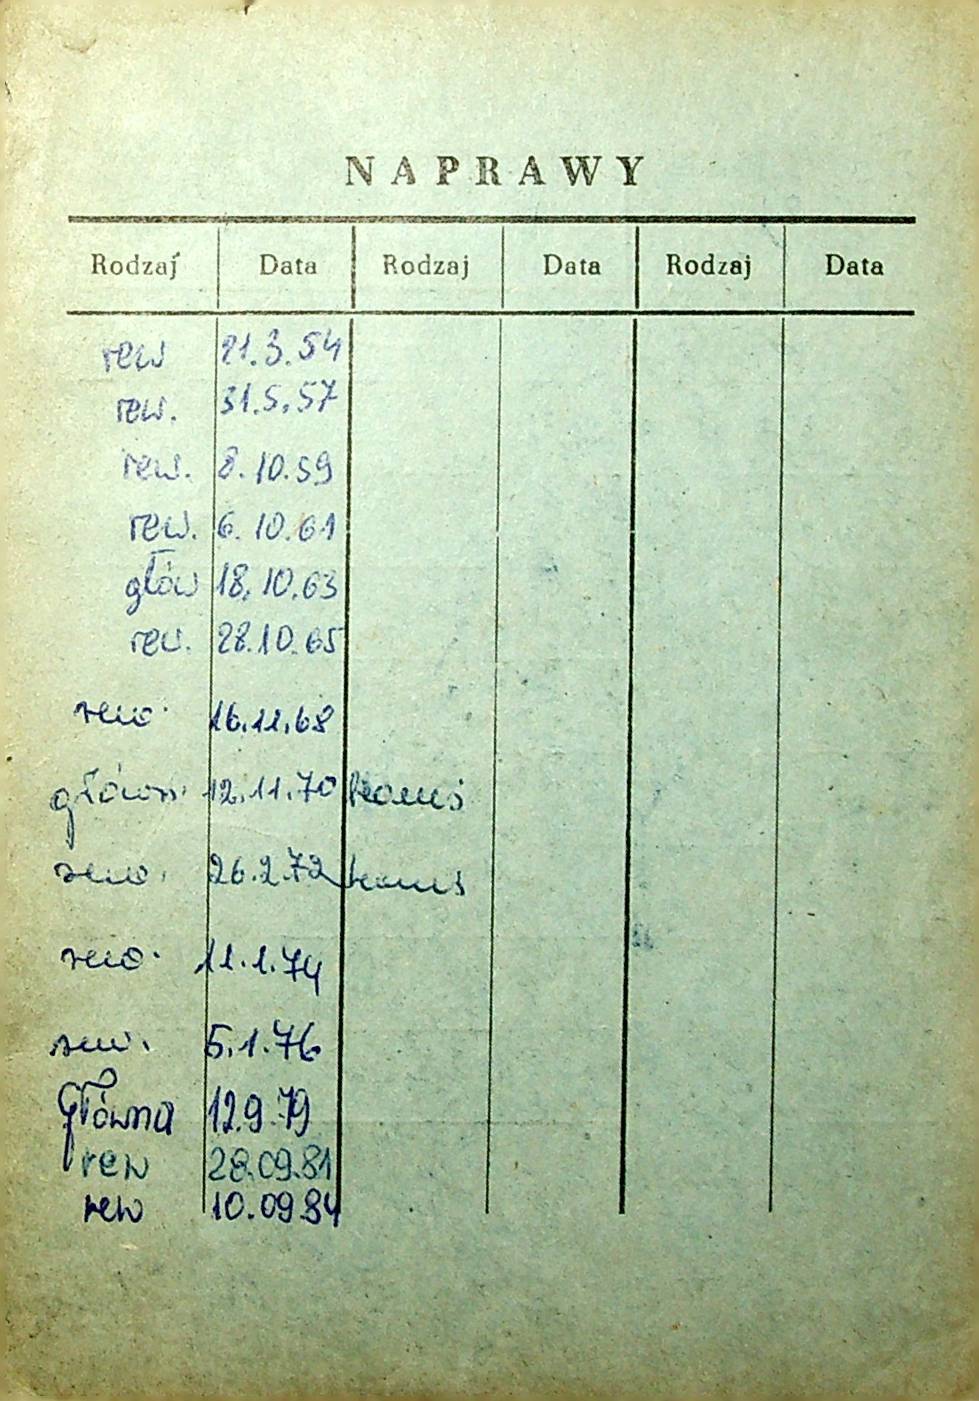 NAPRAWY
Rodzaj Data Rodzaj Data Rodzaj Data
rew 21.3.54
rew. 31.5.57
rew. 8.10.59
rew. 6.10.61
głów 18.10.63
rew. 28.10.65
rew. 16.11.68
główn. 12.11.70
rew. 26.2.72
rew. 11.1.74
rew. 5.1.76
Główna 12.9.79
rew 28.09.81
rew 10.09.84